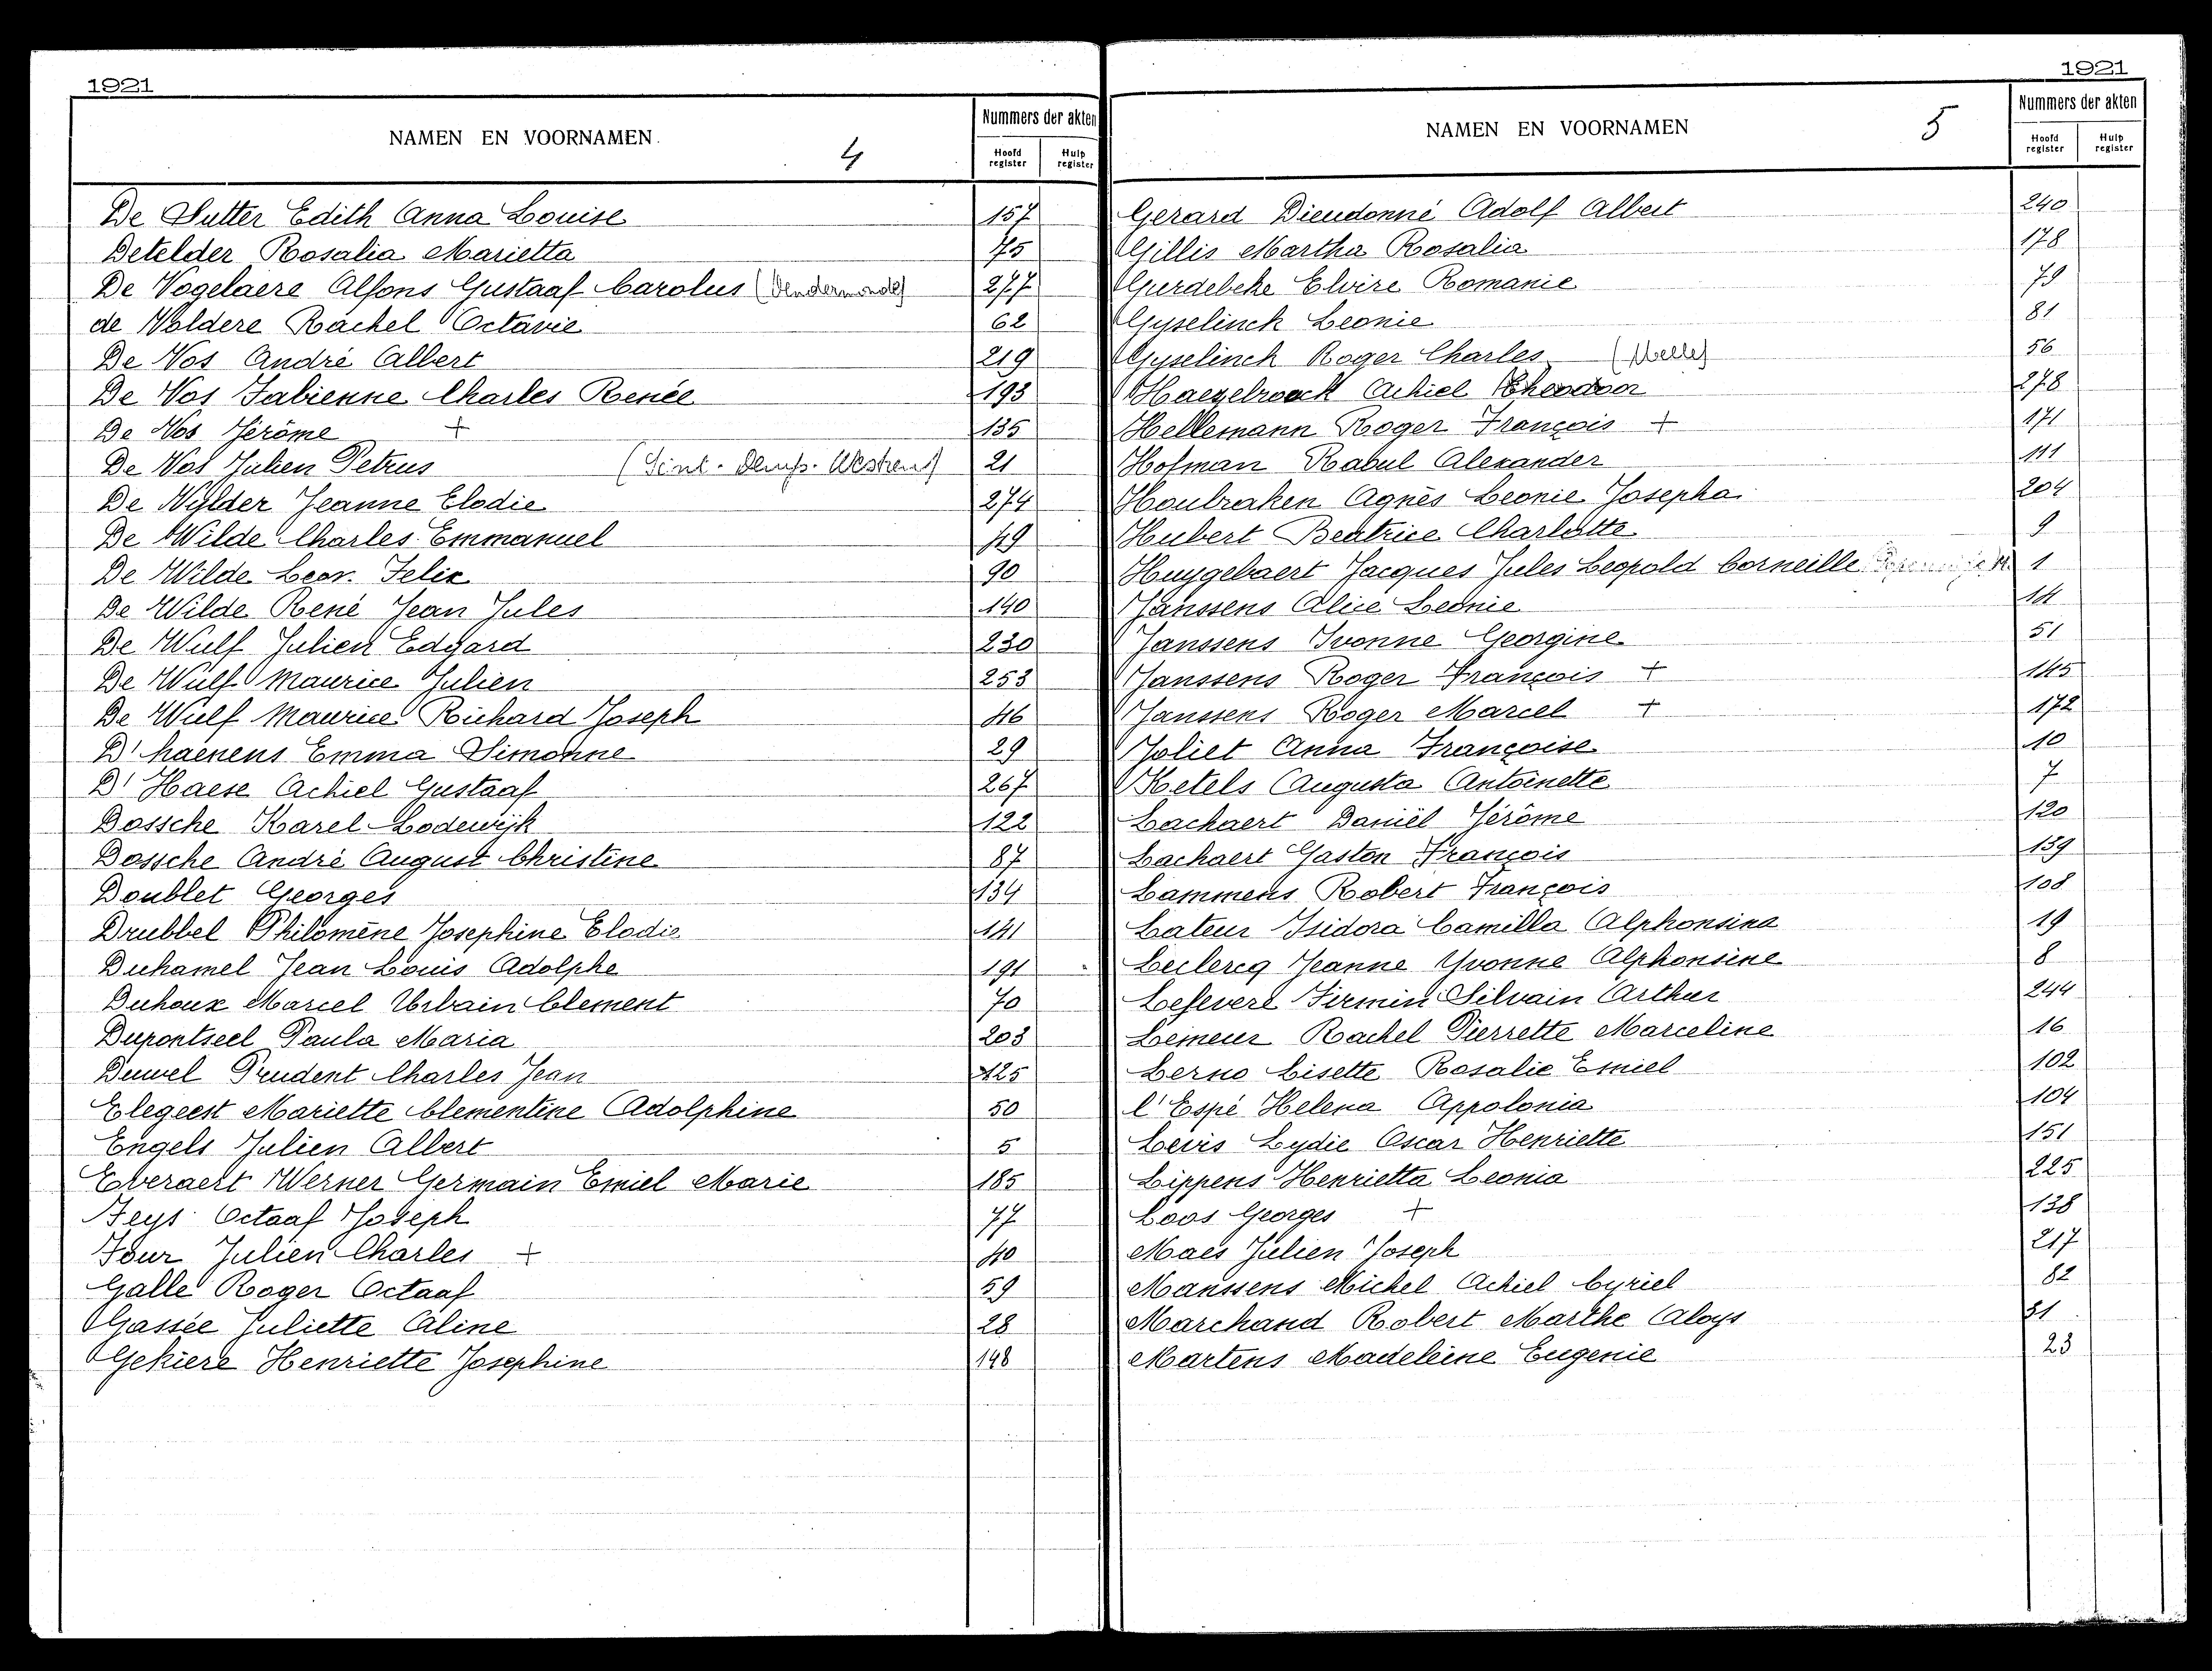 1921
NAMEN EN VOORNAMEN.
4
Nummers der akten
Hoofd register
Hulp register
De Sutter Edith Anna Louise 157
Detelder Rosalia Marietta 75
De Vogelaere Alfons Gustaaf Carolus (Dendermonde) 277
de Voldere Rachel Octavie 62
De Vos André Albert 219
De Vos Fabienne Charles Renée 193
De Vos Jérôme + 135
De Vos Julien Petrus (Sint-Denijs-Westrem) 21
De Vylder Jeanne Elodie 274
De Wilde Charles Emmanuel 49
De Wilde Leon Felix 90
De Wilde René Jean Jules 140
De Wulf Julien Edgard 230
De Wulf Maurice Julien 253
De Wulf Maurice Richard Joseph 46
D'haenens Emma Simonne 29
D'Haese Achiel Gustaaf 267
Dossche Karel Lodewijk 122
Dossche André August Christine 87
Doublet Georges 134
Drubbel Philomène Josephine Elodie 141
Duhamel Jean Louis Adolphe 191
Duhoux Marcel Urbain Clement 70
Dupontseel Paula Maria 203
Duwel Prudent Charles Jean 125
Elegeest Mariette Clementine Adolphine 50
Engels Julien Albert 5
Everaert Werner Germain Emiel Marie 185
Feys Octaaf Joseph 77
Four Julien Charles + 40
Galle Roger Octaaf 59
Gassée Juliette Aline 28
Gekiere Henriette Josephine 148
1921
NAMEN EN VOORNAMEN
5
Nummers der akten
Hoofd register
Hulp register
Gerard Dieudonné Adolf Albert 240
Gillis Martha Rosalia 178
Gurdebeke Elvire Romanie 79
Gyselinck Leonie 81
Gyselinck Roger Charles (Melle) 56
Haezebrouck Achiel Theodoor 278
Hellemann Roger François + 171
Hofman Raoul Alexander 111
Houbraken Agnès Leonie Josepha 204
Hubert Beatrice Charlotte 9
Huygebaert Jacques Jules Leopold Corneille 1
Janssens Alice Leonie 14
Janssens Yvonne Georgine 51
Janssens Roger François + 145
Janssens Roger Marcel + 172
Joliet Anna Françoise 10
Ketels Augusta Antoinette 7
Lachaert Daniël Jérôme 120
Lachaert Gaston François 139
Lammens Robert François 108
Lateur Isidora Camilla Alphonsina 19
Leclercq Jeanne Yvonne Alphonsine 8
Lefevere Firmin Silvain Arthur 244
Lemeur Rachel Pierrette Marceline 16
Lerno Lisette Rosalie Emiel 102
l'Espé Helena Appolonia 104
Levis Lydie Oscar Henriette 151
Lippens Henrietta Leonia 225
Loos Georges + 138
Maes Julien Joseph 217
Manssens Michel Achiel Cyriel 82
Marchand Robert Marthe Aloys 31
Martens Madeleine Eugenie 23